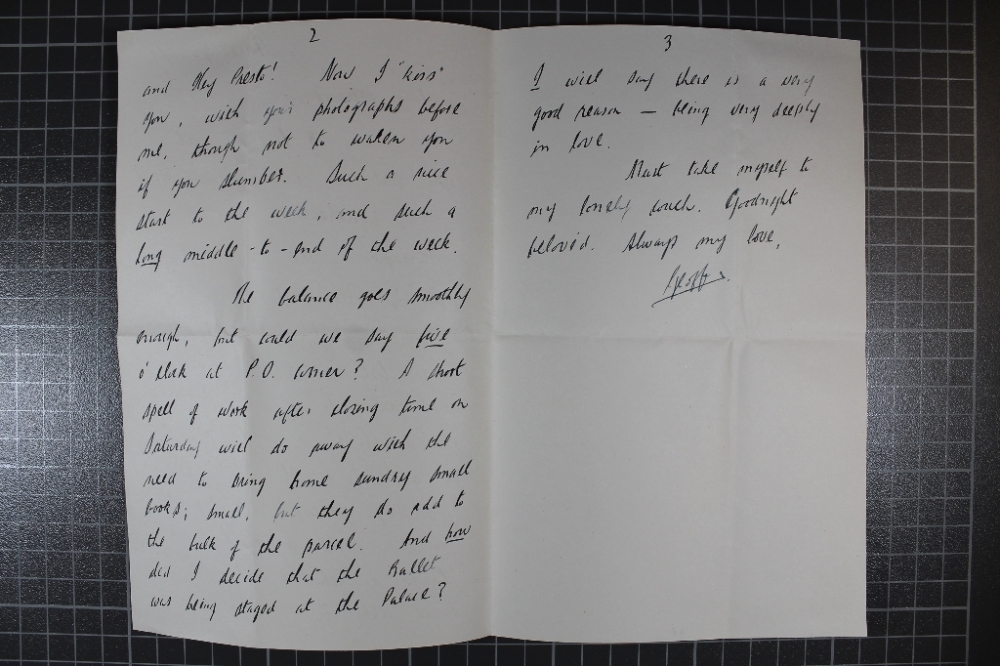 2
and Hey Presto! Now I "kiss"
you, with your photographs before
me, though not to waken you
if you slumber. Such a nice
start to the week, and such a
long middle-to-end of the week.
The balance goes smoothly
enough, but could we say five
o'clock at P.O. corner? A short
spell of work after closing time on
Saturday will do away with the
need to bring home sundry small
books; small, but they do add to
the bulk of the parcel. And how
did I decide that the Ballet
was being staged at the Palace?
3
I will say there is a very
good reason — being very deeply
in love.
Must take myself to
my lonely couch. Goodnight
beloved. Always my love,
Geoff.